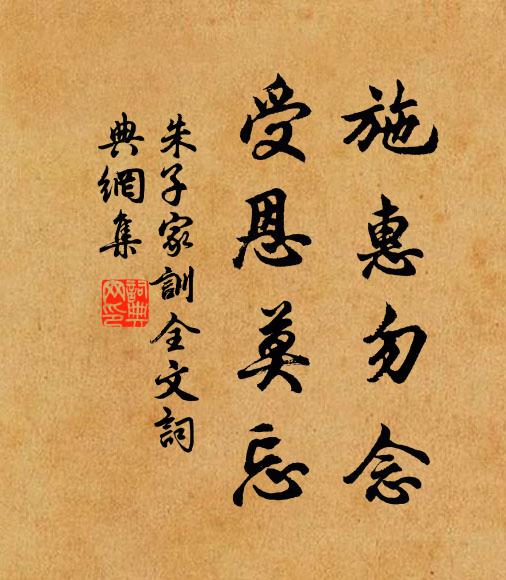 施惠勿念
受恩莫忘
朱子家訓全文詞
典網集
詞典網印